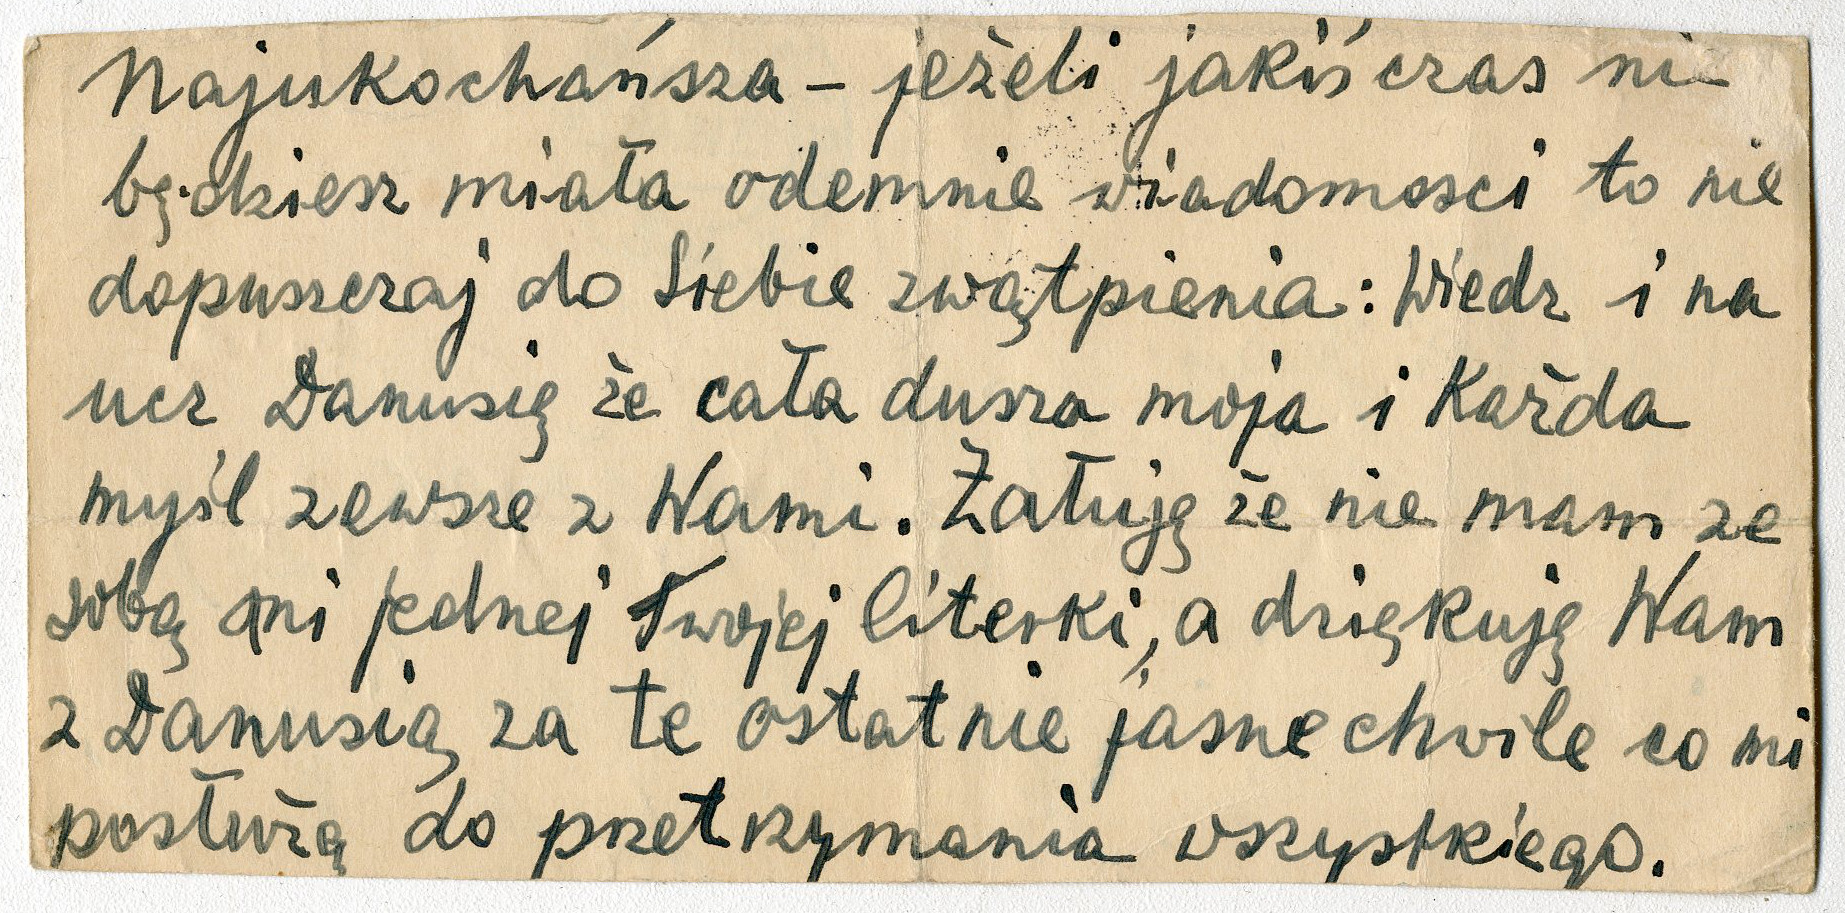 Najukochańsza – jeżeli jakiś czas nie
będziesz miała odemnie wiadomosci to nie
dopuszczaj do Siebie zwątpienia: Wiedz i na
ucz Danusię że cała dusza moja i Każda
myśl zewsze z Wami. Żałuję że nie mam ze
sobą ani jednej Twojej literki, a dziękuję Wam
z Danusią za te ostatnie jasne chwile co mi
posłużą do przetrzymania wszystkiego.